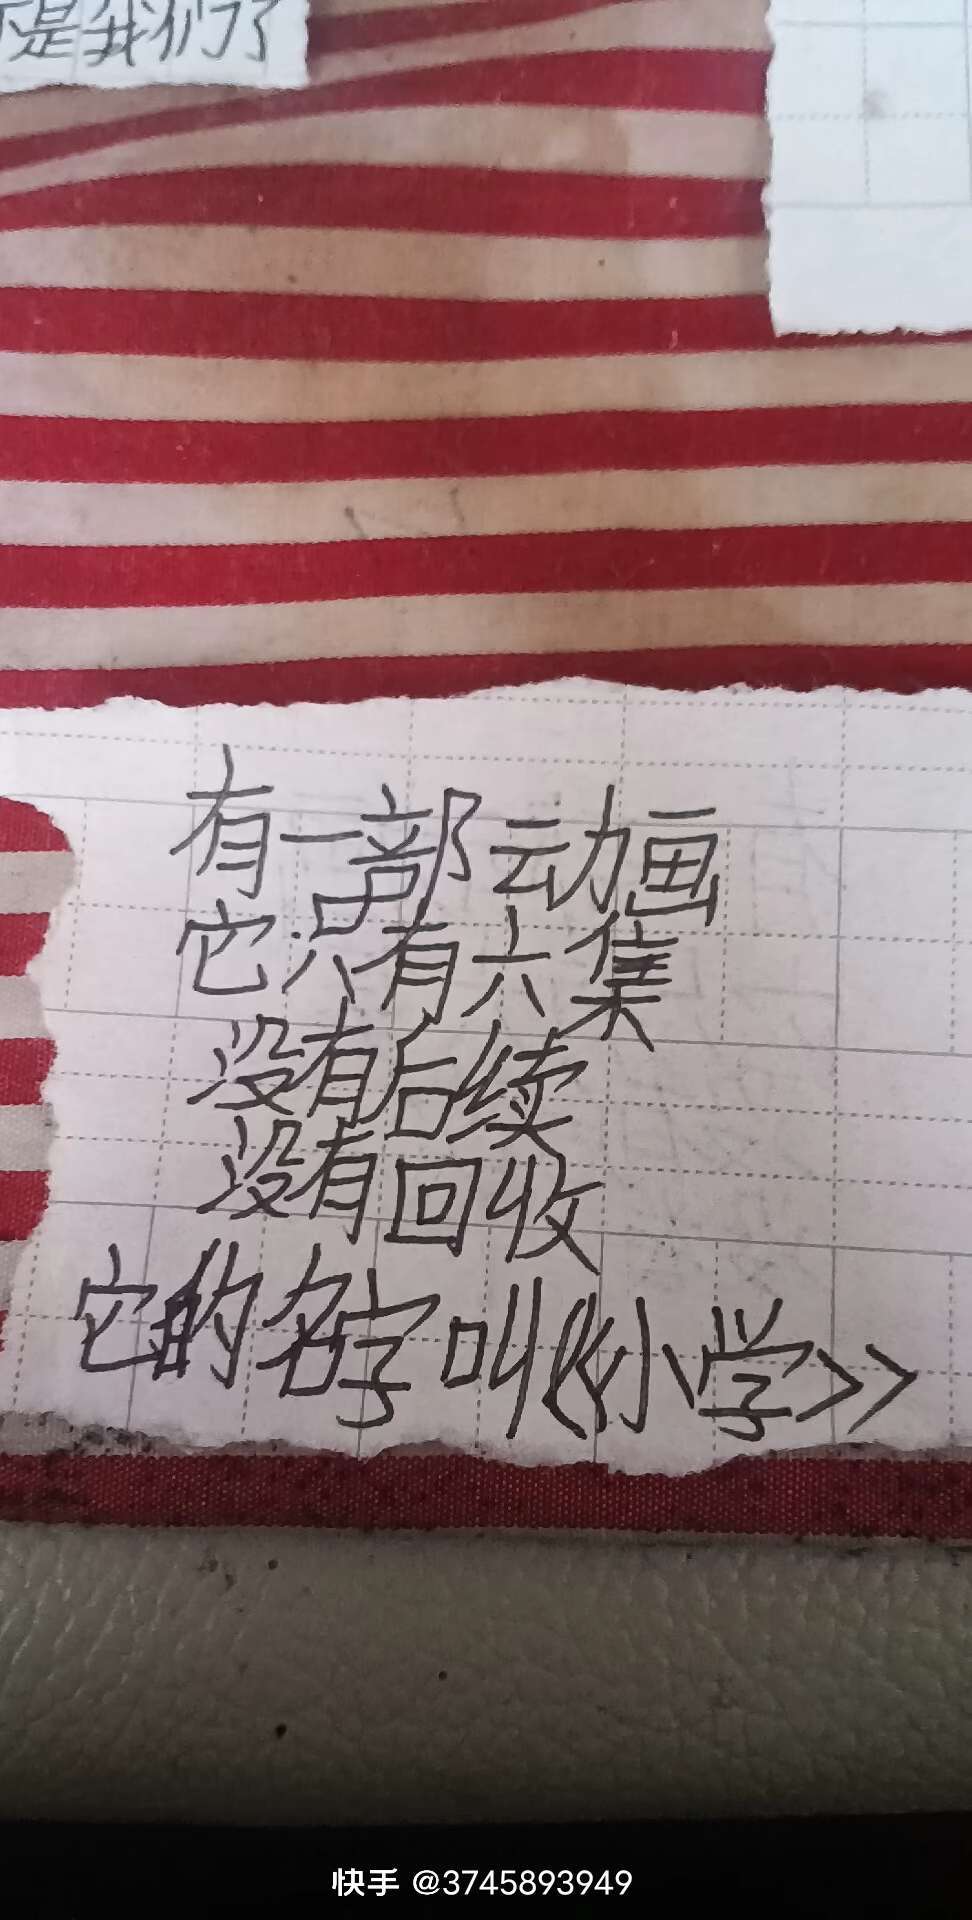 是我们了
有一部动画
它只有六集
没有后续
没有回收
它的名字叫《小学》
快手 @3745893949